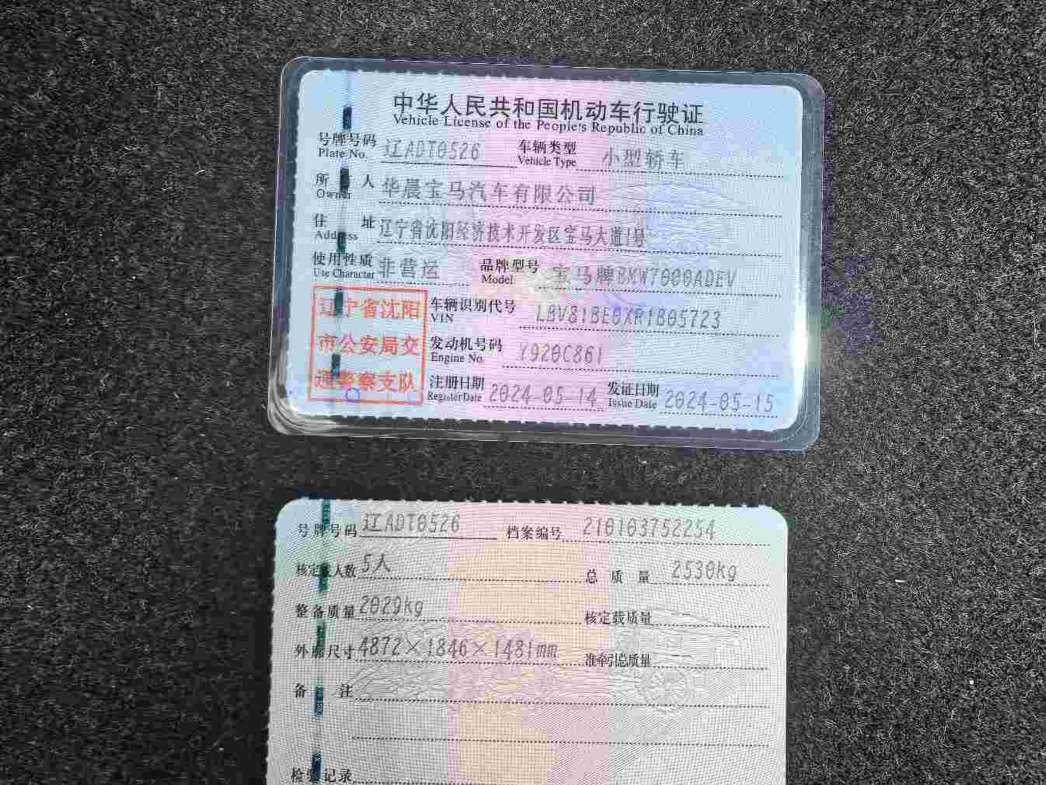 中华人民共和国机动车行驶证
Vehicle License of the People's Republic of China
号牌号码 Plate No. 辽ADT0526 车辆类型 Vehicle Type 小型轿车
所有人 Owner 华晨宝马汽车有限公司
住址 Address 辽宁省沈阳经济技术开发区宝马大道1号
使用性质 Use Character 非营运 品牌型号 Model 宝马牌BMW7000ADEV
辽宁省沈阳 车辆识别代号 VIN LBV81BE0XR1B05723
市公安局交 发动机号码 Engine No. Y920C861
通警察支队 注册日期 Register Date 2024-05-14 发证日期 Issue Date 2024-05-15
号牌号码 辽ADT0526 档案编号 210103752254
核定载人数 5人 总质量 2530kg
整备质量 2029kg 核定载质量
外廓尺寸 4872×1846×1481mm 准牵引总质量
备注
检验记录